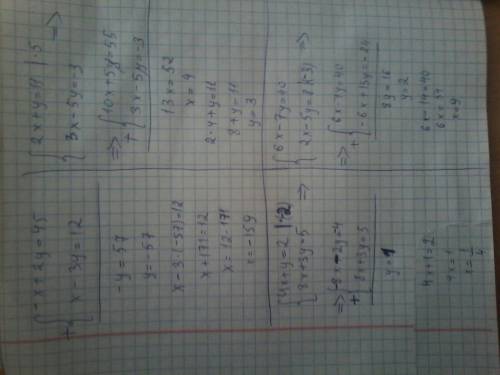 -x+2y=45
+ x-3y=12
-y=57
y=-57
x-3·(-57)=12
x+171=12
x=12-171
x=-159
2x+y=11 |·5
3x-5y=-3 =>
=> 10x+5y=55
+ 3x-5y=-3
13x=52
x=4
2·4+y=11
8+y=11
y=3
4x+y=2 |·(-2)
8x+3y=5 =>
=> -8x-2y=-4
+ 8x+3y=5
y=1
4x+1=2
4x=1
x=1/4
6x-7y=40
2x-5y=8 |·(-3) =>
=> 6x-7y=40
+ -6x+15y=-24
8y=16
y=2
6x-14=40
6x=54
x=9